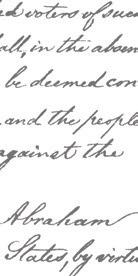 ed voters of such
all, in the absen
be deemed con
and the people
against the
Abraham
States, by virtu